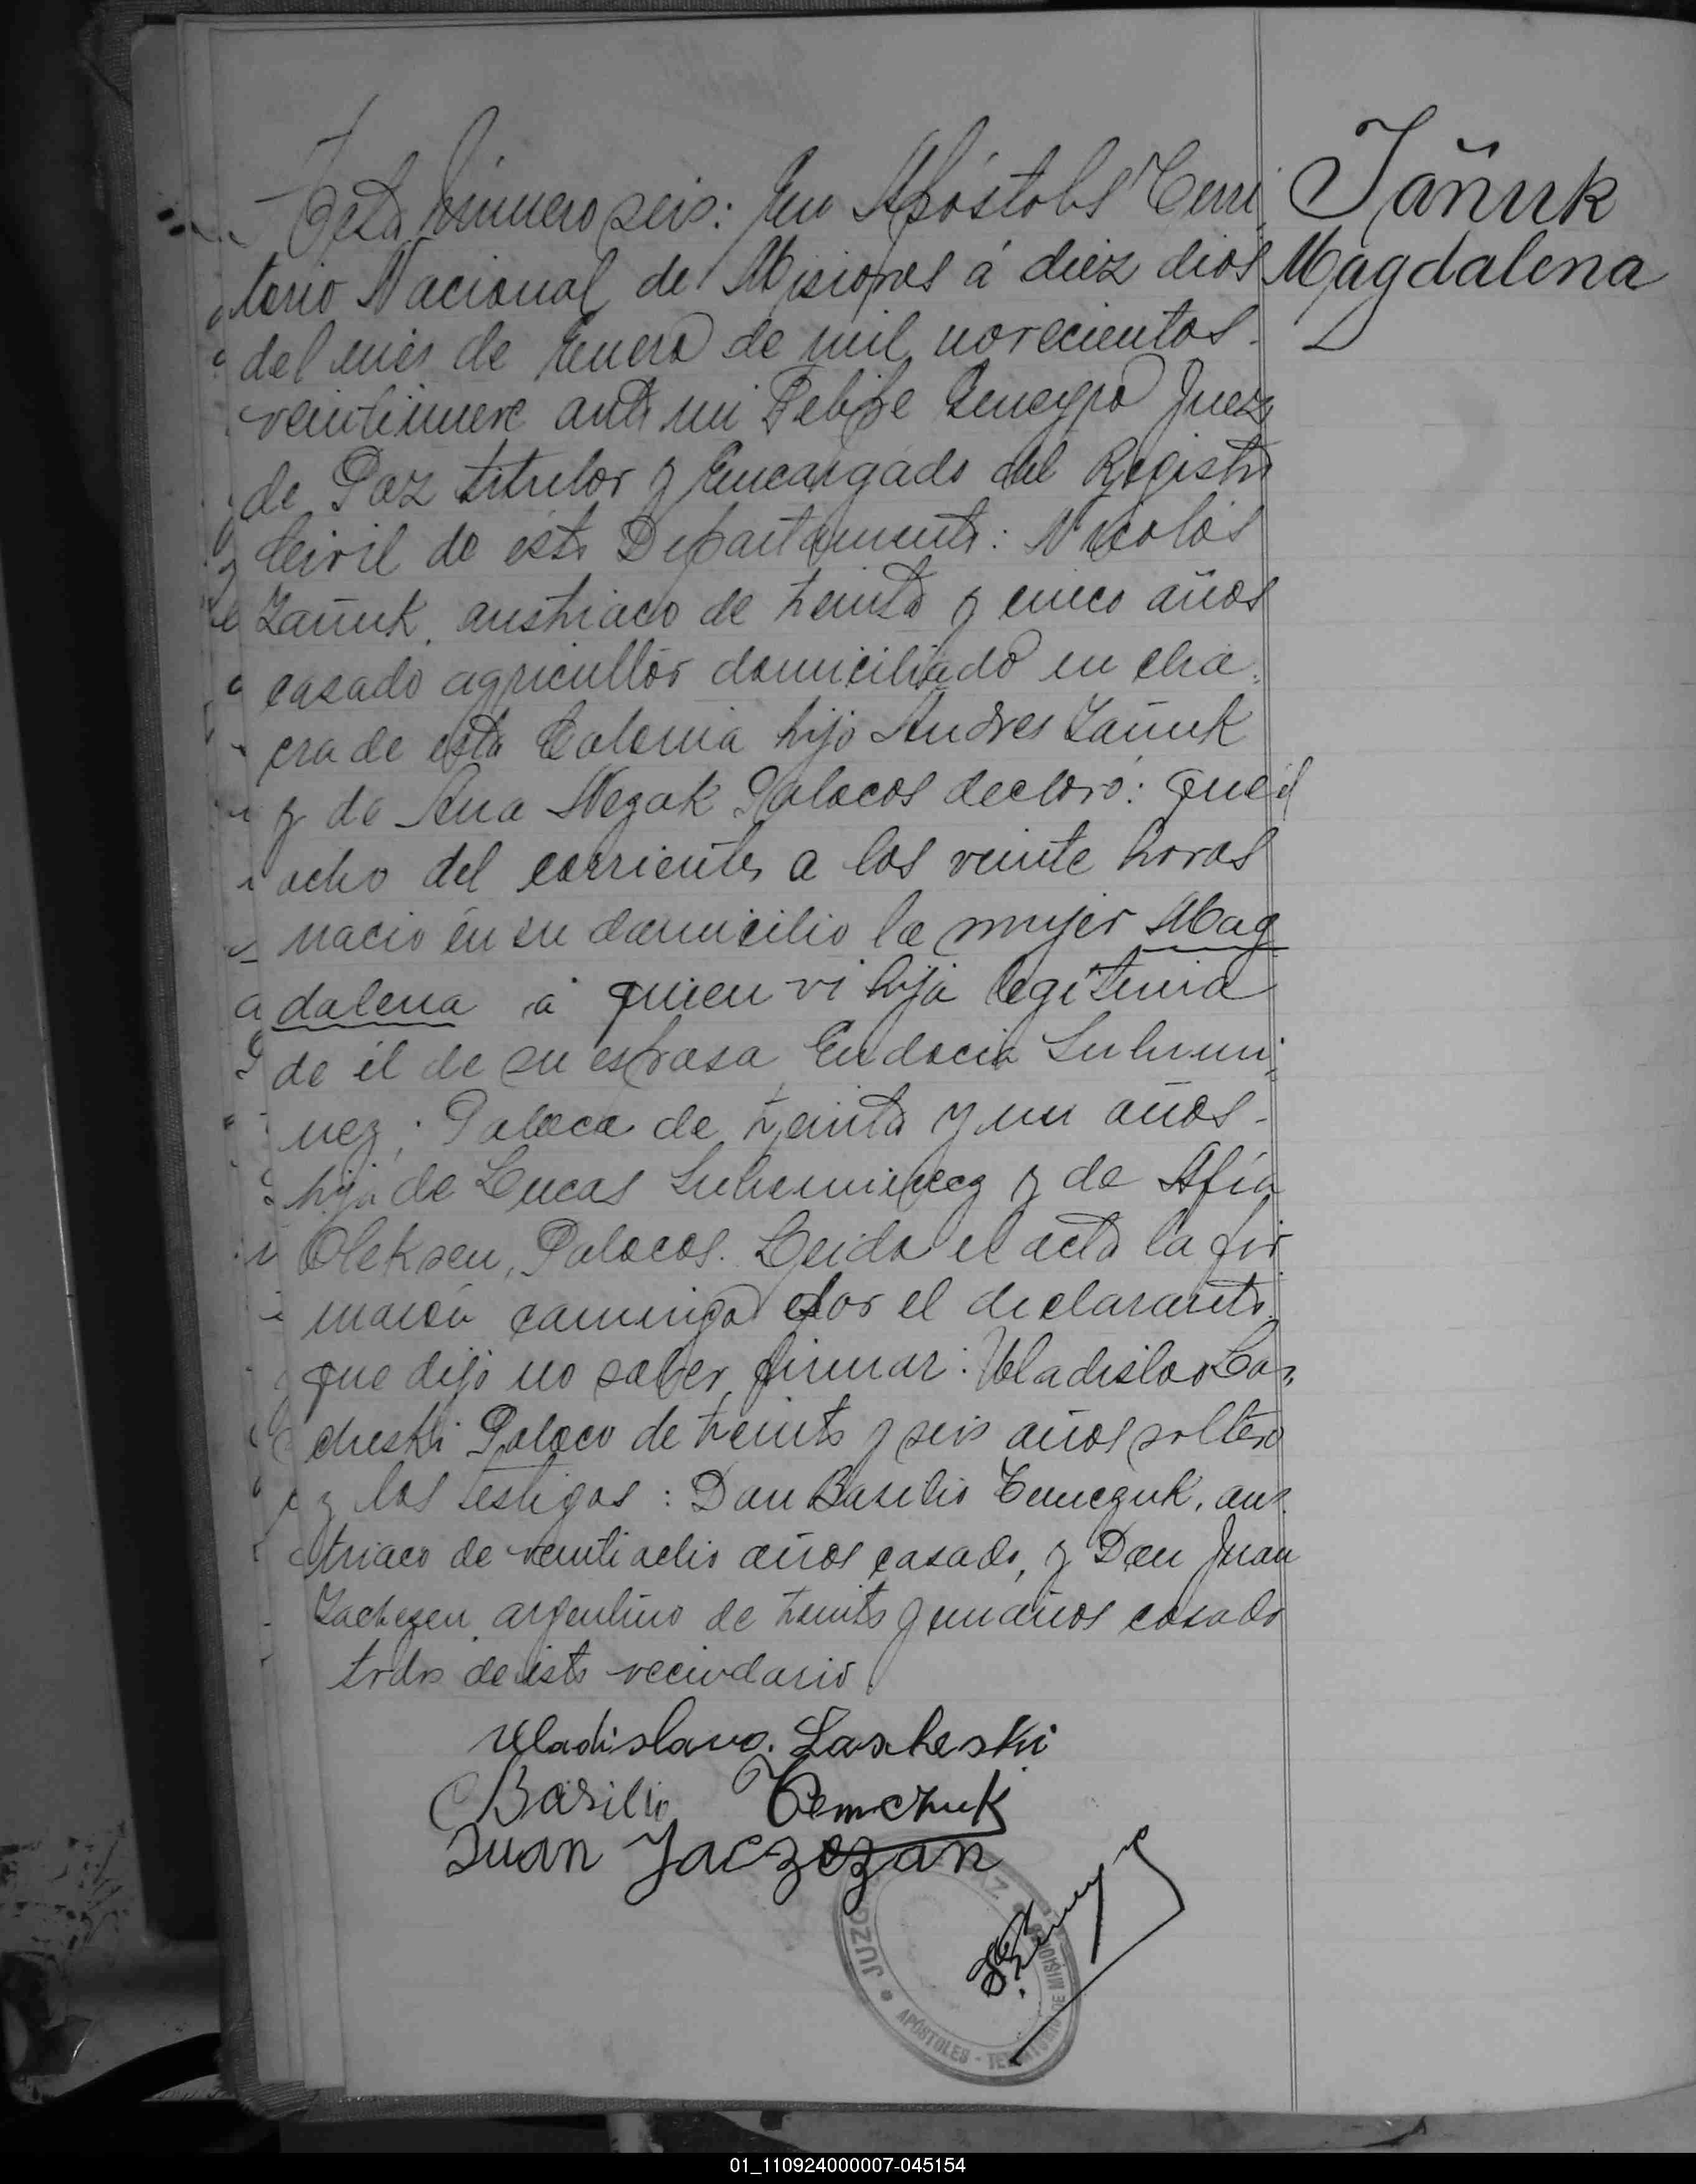 Acta número seis: En Apóstoles Terri
torio Nacional de Misiones á diez dias
del mes de Enero de mil novecientos
veintinueve ante mi Felipe Juez
de Paz titular y Encargado del Registro
Civil de este Departamento: Nicolás
Zañuk, austriaco de treinta y cinco años
casado agricultór domiciliado en chá
cra de esta Colonia hijo Andres Zañuk
y de Ana Polacos declaró: que el
ocho del corriente a las veinte horas
nacio en su domicilio la mujer Mag
dalena á quien vi hija legitima
de él de su esposa Eudocia Suhemi
nez, Polaca de treinta y un años
hija de Lucas y de Afia
Oleksen, Polacos. Leida el acta la fir
maron conmigo por el declarante
que dijo no saber firmar: Uladislao Las
cheski Polaco de treinta y seis años soltero
y los testigos: Don Basilio Temczuk, aus
triaco de veintiocho años casado, y Don Juan
argentino de treinta y un años casado
todos de este vecindario.
Uladislavo. Lascheski
Basilio Temczuk
Juan Jaczezan
JUZG PAZ
APÓSTOLES - TERRITORIO DE MISIONES
Jañuk
Magdalena
01_110924000007-045154